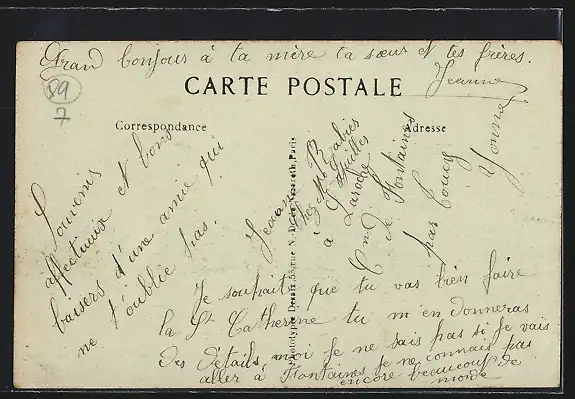 Grand bonjour à ta mère ta sœur et tes frères.
Jeanne
89
7
CARTE POSTALE
Correspondance
Adresse
Souvenirs
affectueux et bons
baisers d'une amie qui
ne t'oublie pas.
Jeanne
chez Mr
à Laroche
En de Fontaines
par Toucy
Yonne
Je souhaite que tu vas bien faire
la Ste Catherine tu m'en donneras
des détails, moi je ne sais pas si je vais
aller à Fontaines je ne connais pas
encore beaucoup de
monde